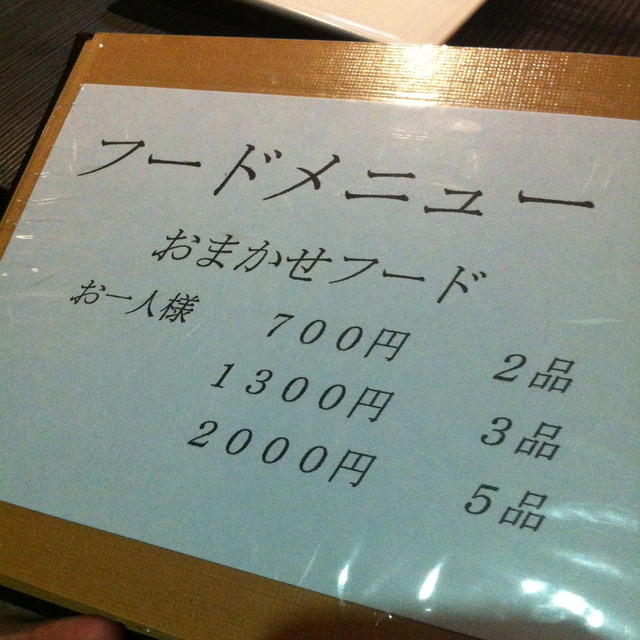 フードメニュー
おまかせフード
お一人様 700円 2品
1300円 3品
2000円 5品